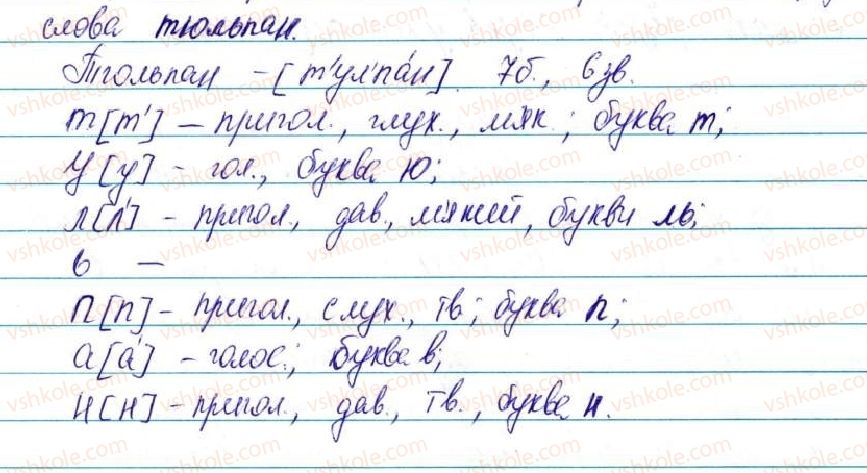 слова тюльпан.
Тюльпан – [т'ул'па́н]. 7б., 6 зв.
т [т'] – пригол., глух., мяк.; буква т;
У [у] – гол., буква ю;
л [л'] – пригол., дзв., м'який, букви ль;
ь –
п [п] – пригол., глух., тв.; буква п;
а [а́] – голос.; буква в;
н [н] – пригол., дзв., тв., буква н.
vshkole.com